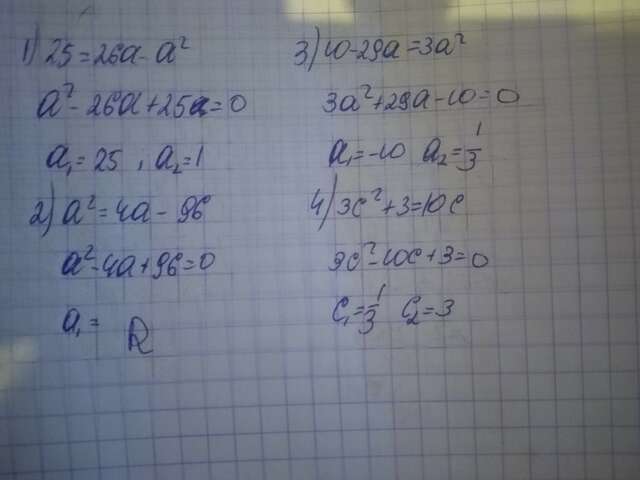 1) 25 = 26a - a²
a² - 26a + 25a = 0
a₁ = 25 , a₂ = 1
2) a² = 4a - 96
a² - 4a + 96 = 0
a₁ = R
3) 10 - 29a = 3a²
3a² + 29a - 10 = 0
a₁ = -10 a₂ = 1/3
4) 3c² + 3 = 10c
3c² - 10c + 3 = 0
c₁ = 1/3 c₂ = 3